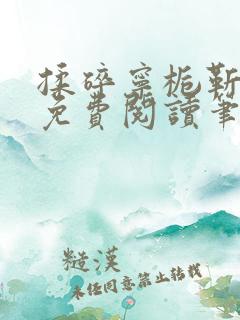 揉碎寧栀靳
免費閱讀筆
糙漢
未經同意禁止轉載